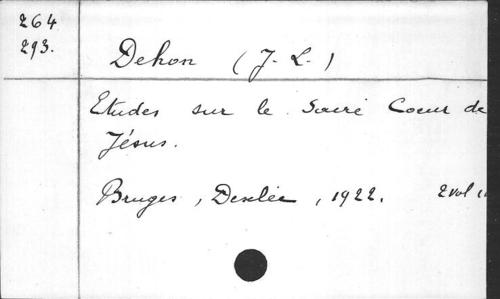 264
293.
Dehon (J. L.)
Etudes sur le Sacré Coeur de
Jésus.
Bruges, Desclée, 1922. 2 vol